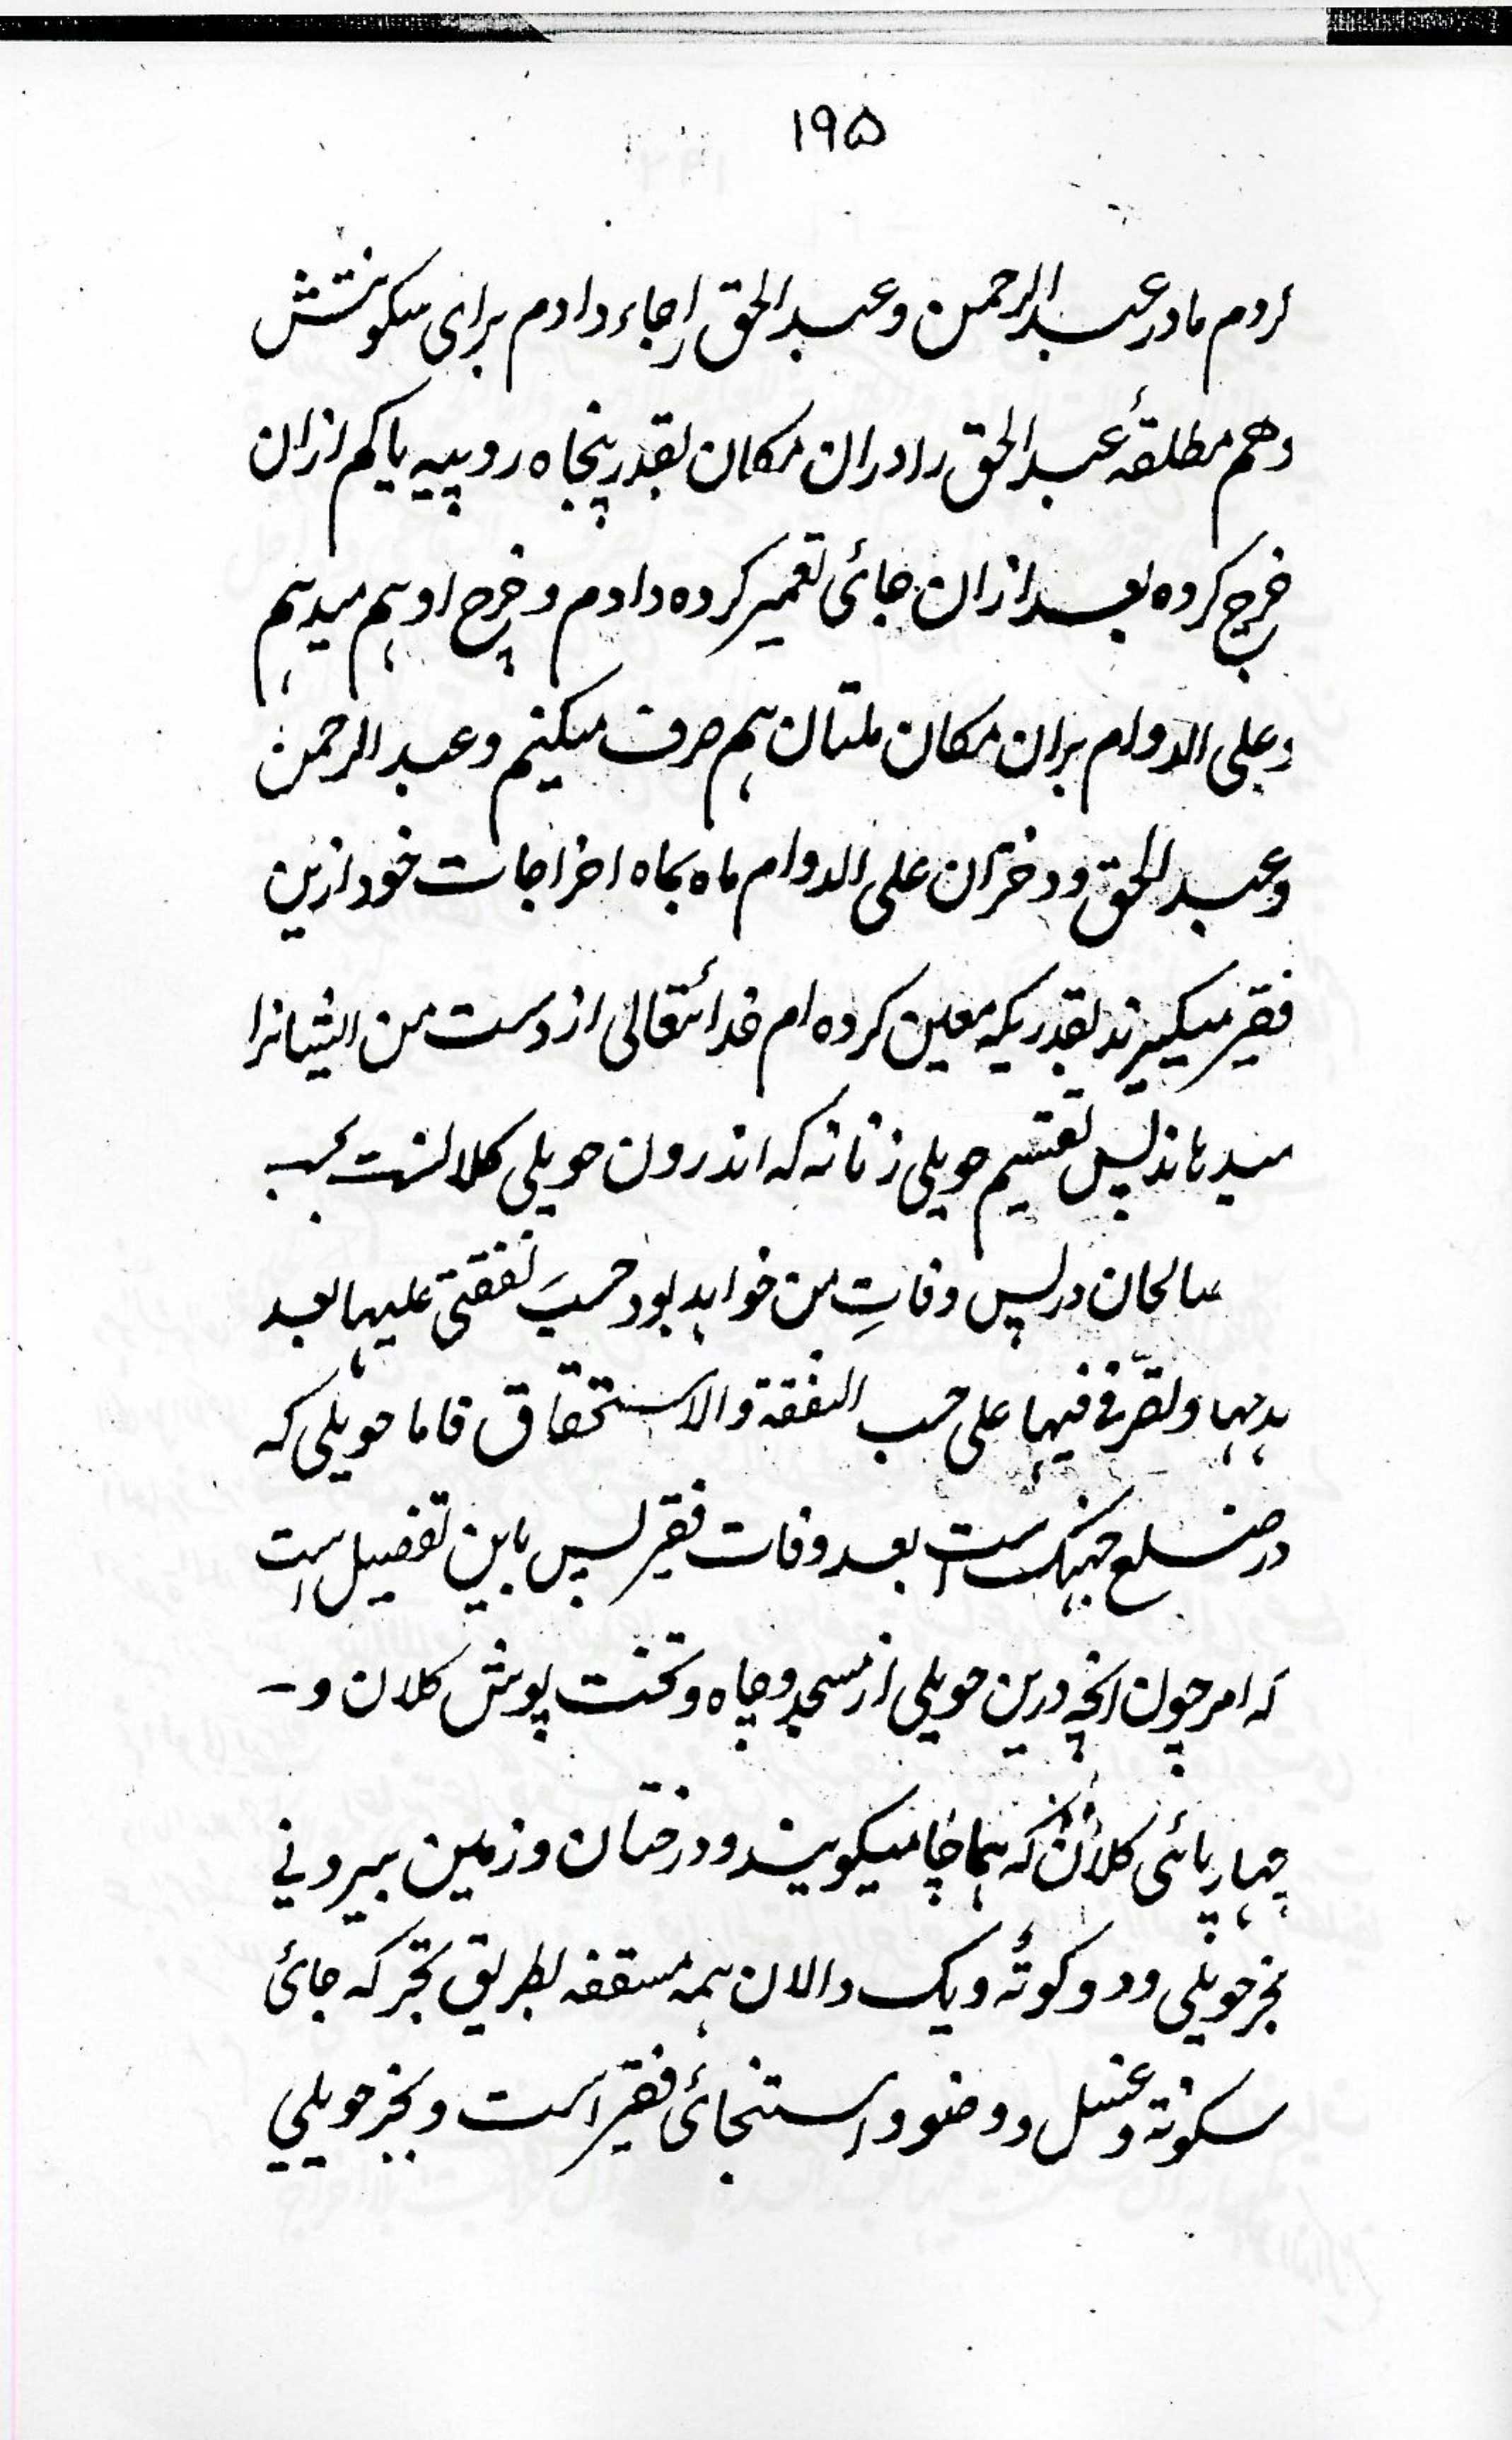 ۱۹۵
کردم مادر عبدالرحمن وعبدالحق را جاء دادم برای سکونتش
وهم مطلقهٔ عبدالحق را دران مکان بقدر پنجاه روپیه یا کم ازان
خرچ کرده بعد ازان جائی تعمیر کرده دادم و خرچ او ہم میدہم
وعلی الدوام بران مکان ملتان ہم صرف میکنم وعبدالرحمن
وعبدالحق ودختران علی الدوام ماه بماه اخراجات خود ازین
فقیر میکیرند بقدریکه معین کرده ام خدائتعالی از دست من ایشانرا
میدہاند پس تقسیم حویلی زنانه که اندرون حویلی کلانست
صالحان در پس وفاتِ من خواہد بود حسبَ نفقتی علیہا بعد
ہدمہا وتصرّفی فیہا علی حسب النفقة والاستحقاق فاما حویلی که
در ضلع جہنک است بعد وفات فقیر پس باین تفصیل است
که امر چون انچه درین حویلی از مسجد وچاه وتخت پوش کلان و-
چہارپائی کلان که ہماچا میکویند ودرختان وزمین بیرونی
بجز حویلی ودو کوٹه ویک دالان ہمه مسقفه بطریق که جائ
سکونة وغسل ووضو واستنجائی فقیر است وبجز حویلی